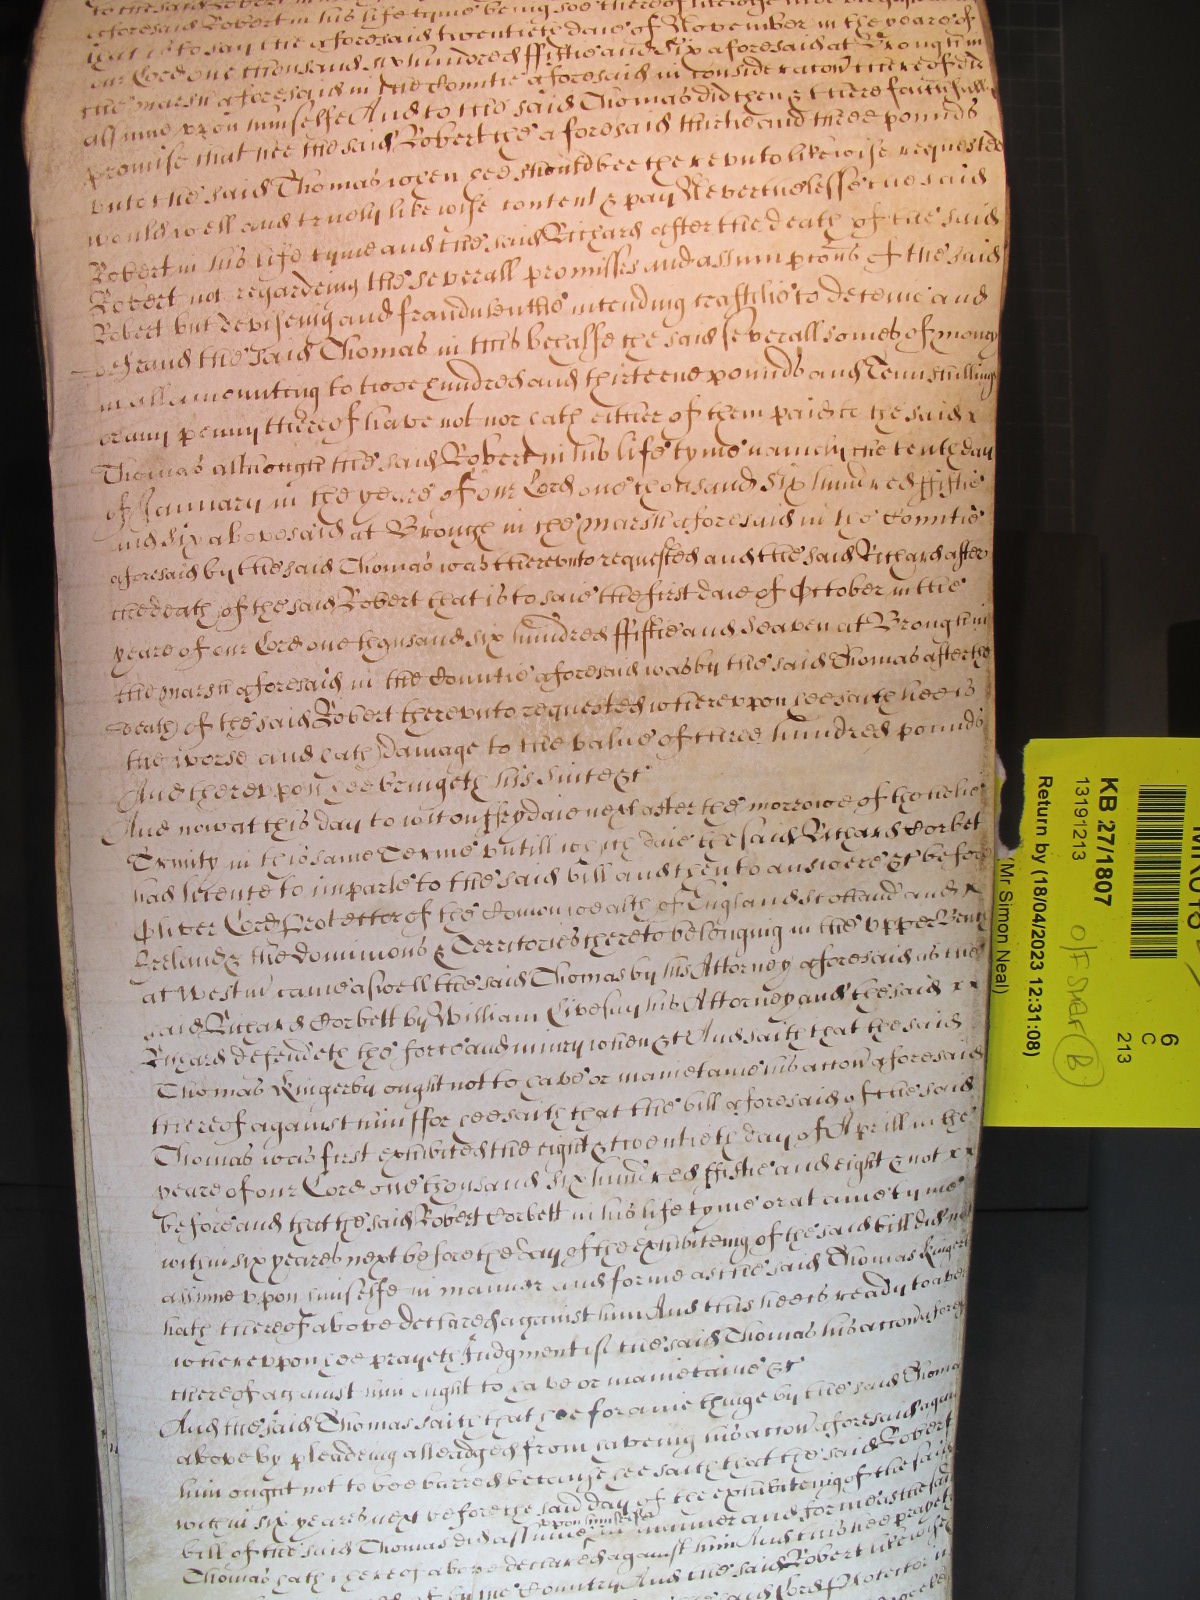 to the said Robert in his life tyme being
aforesaid Robert in his life tyme being soe thereof
that is to say the aforesaid twentieth daie of November in the yeare of
our Lord one thousand six hundred ffiftie and six aforesaid at Brough in
the marsh aforesaid in the Countie aforesaid in consideracon thereof did
assume upon himselfe And to the said Thomas did then & there faithfully
promise that hee the said Robert the aforesaid thirtie and three pounds
unto the said Thomas when hee should bee thereunto likewise requested
would well and truely likewise content & pay Neverthelesse the said
Robert in his life tyme and the said Richard after the death of the said
Robert not regardeing the severall promisses and assumptons of the said
Robert but deviseing and fraudulentlie intending craftilie to deceive and
defraud the said Thomas in this behalfe the said severall somes of money
in all amounting to twoe hundred and thirteene pounds and Tenn shillings
or any penny thereof have not nor hath either of them paid to the said x
Thomas although the said Robert in his life tyme namely the tenth day
of January in the yeare of our Lord one thousand six hundred ffiftie
and six abovesaid at Brough in the marsh aforesaid in the Countie
aforesaid by the said Thomas was thereunto requested and the said Richard after
the death of the said Robert that is to saie the first daie of October in the
yeare of our Lord one thousand six hundred ffiftie and seaven at Brough in
the marsh aforesaid in the Countie aforesaid was by the said Thomas after the
death of the said Robert thereunto requested whereupon hee saith hee is
the worse and hath damage to the value of three hundred pounds
And thereupon hee bringeth his suite &c
And now at this day to wit on ffrydaie next after the morrowe of the holie
Trinity in this same Terme untill which daie the said Richard Corbet
had licence to imparle to the said bill and then to answere &c before
Oliver Lord Protector of the Comonwealth of England Scotland and x
Ireland & the dominions & Territories thereto belonging in the upper Bench
at Westm came aswell the said Thomas by his Attorney aforesaid as the
said Richard Corbett by William Livesay his Attorney and the said x x
Richard defendeth the force and iniury when &c And saith that the said
Thomas Kingerby ought not to have or maintaine his accon aforesaid
thereof against him ffor hee saith that the bill aforesaid of the said
Thomas was first exhibited the eight & twentieth day of Aprill in the
yeare of our Lord one thousand six hundred ffiftie and eight & not x x
before and that the said Robert Corbett in his life tyme or at anie tyme
within six yeares next before the day of the exhibiteing of the said bill did not
assume upon himselfe in manner and forme as the said Thomas Kingerby
hath thereof above declared against him And this hee is ready to aver
whereupon hee prayeth Judgment if the said Thomas his accon aforesaid
thereof against him ought to have or maintaine &c
And the said Thomas saith that hee for anie thinge by the said
above by pleadeing alleadged from haveing his accon aforesaid against
him ought not to bee barred because hee saith that the said Robert
within six yeares next before the said day of the exhibiteing of the said
bill of the said Thomas did assume upon himselfe in manner and forme as the said
Thomas hath thereof above declared against him And this hee prayeth
by the Country And the said Robert likewise
said Lord Protector
KB 27/1807
13191213
Return by (18/04/2023 12:31:08)
(Mr Simon Neal)
6
C
213
B